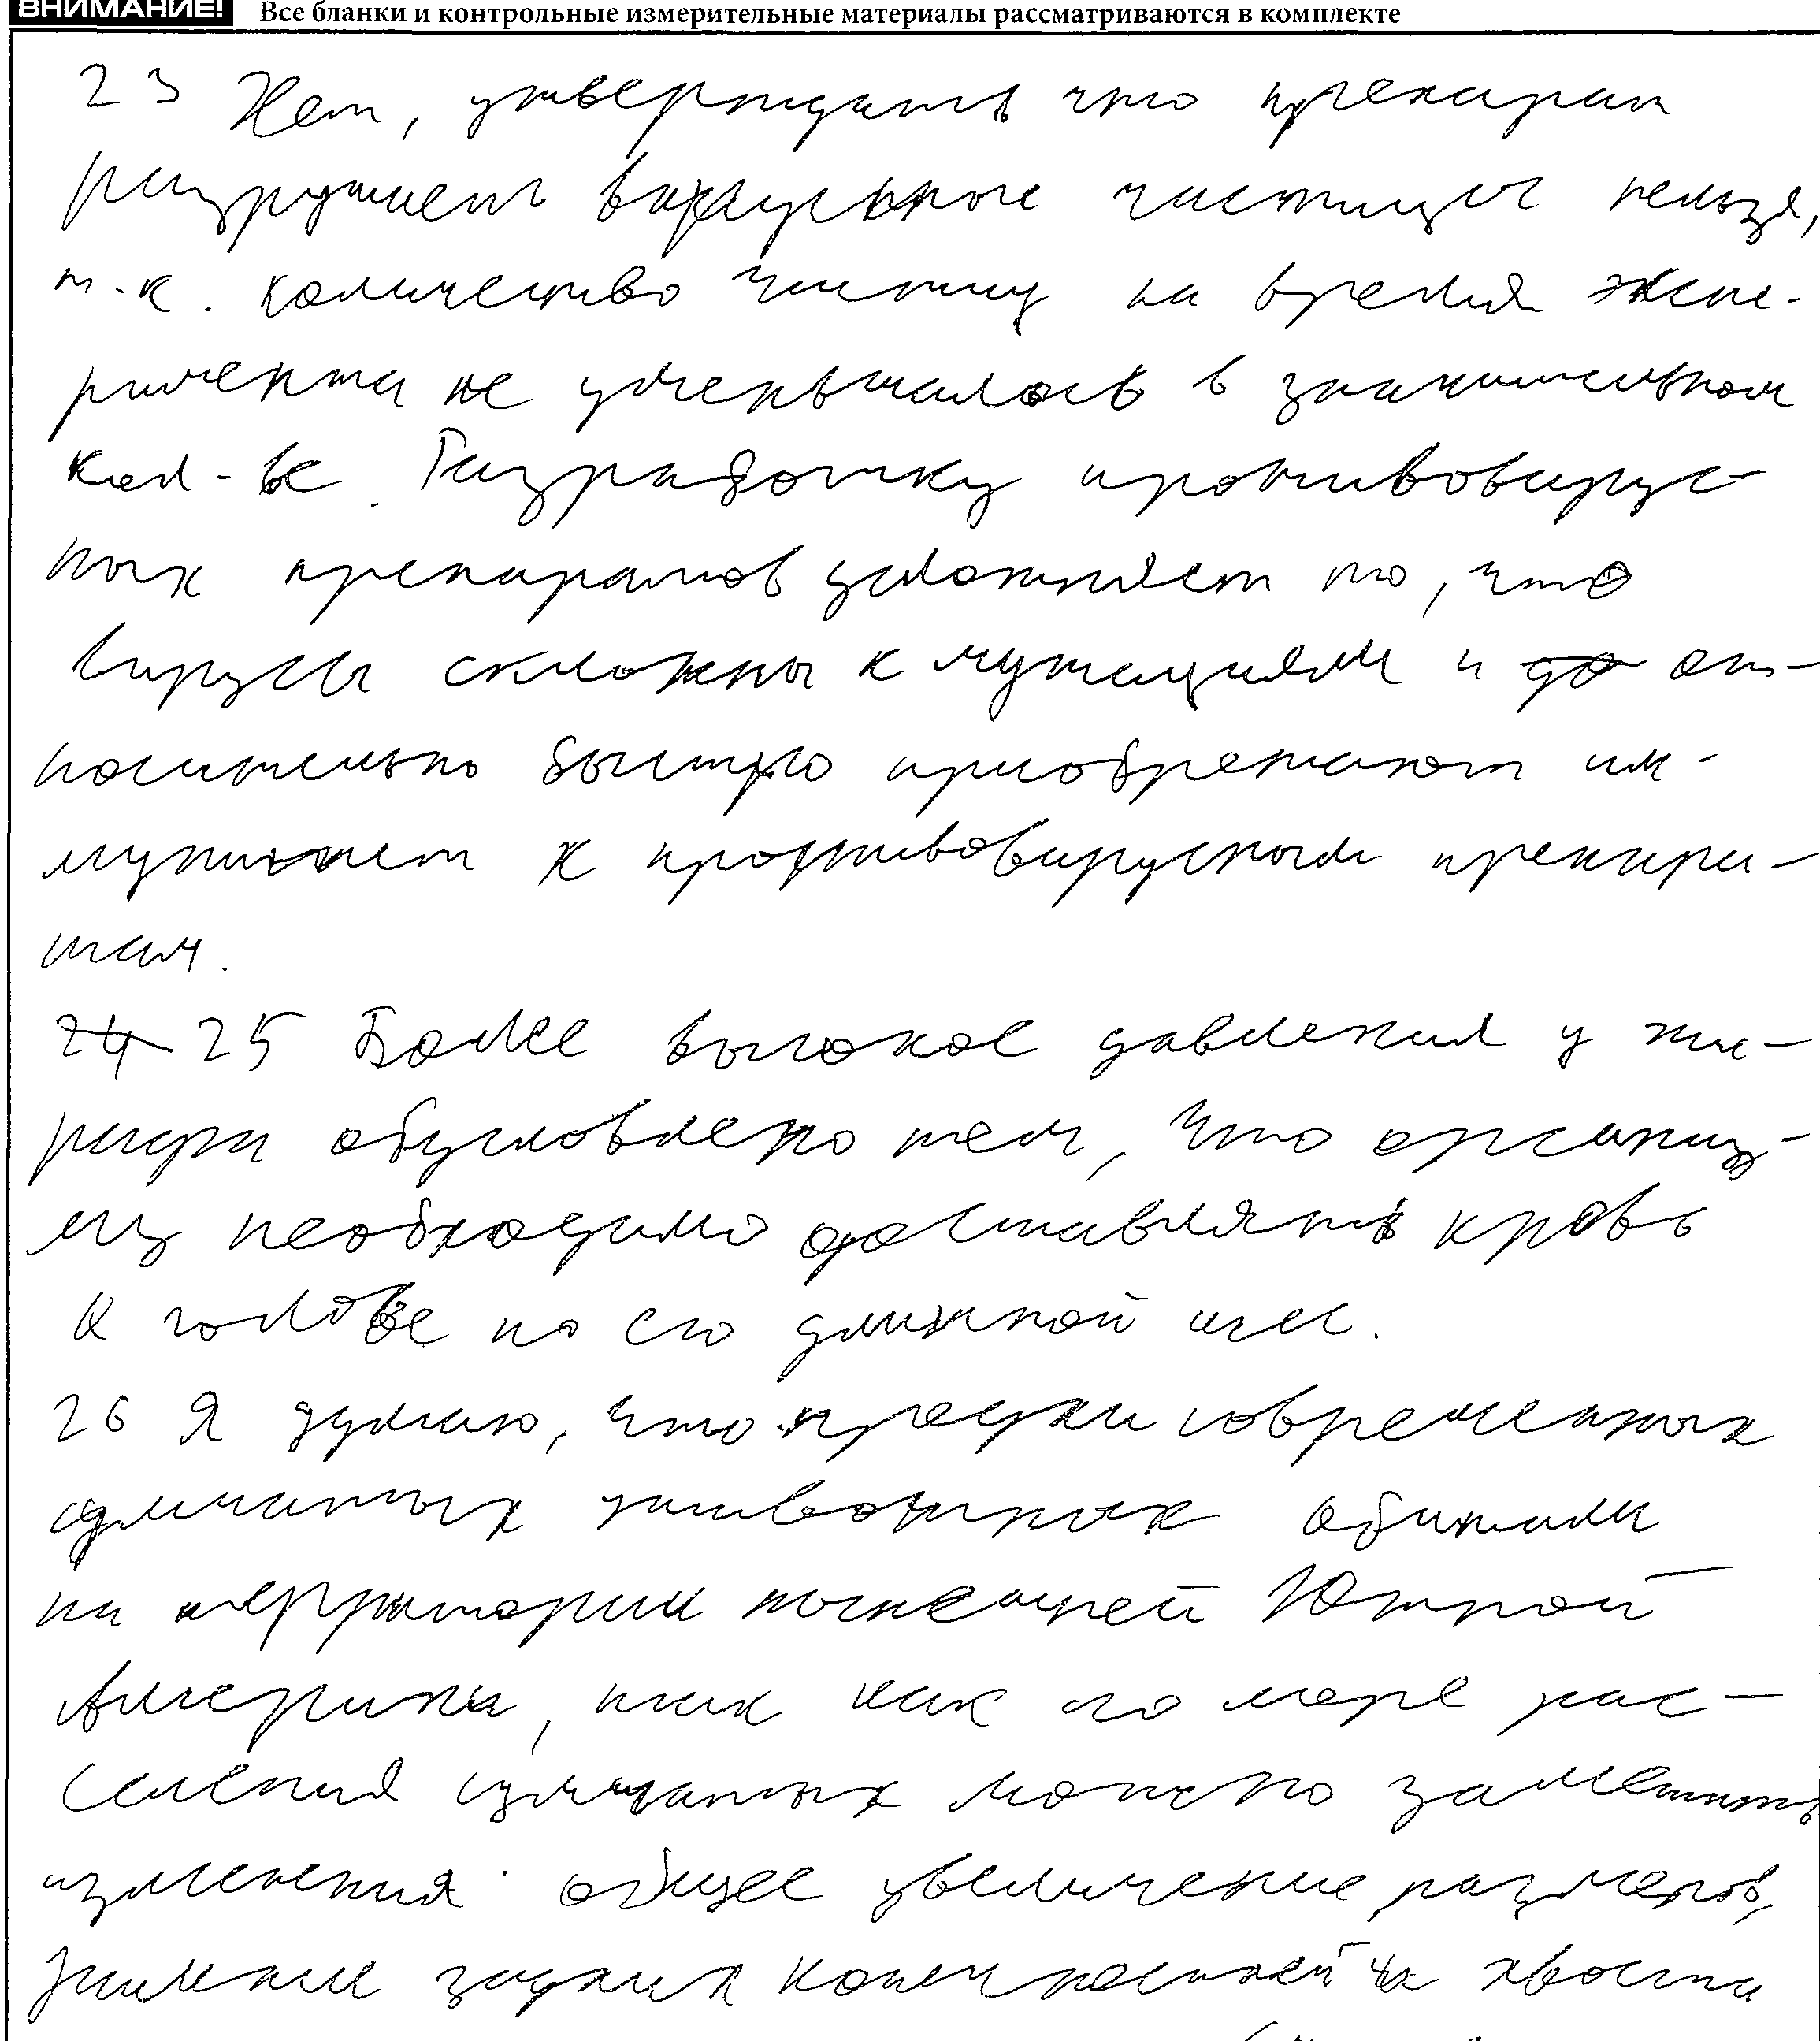 ВНИМАНИЕ! Все бланки и контрольные измерительные материалы рассматриваются в комплекте
23 Нет, утверждать что препарат
разрушает вирусные частицы нельзя,
т.к. количество частиц на время экспе-
римента не уменьшалось в значительном
кол-ве. Разработку противовирус-
ных препаратов усложняет то, что
вирусы склонны к мутациям и до от-
носительно быстро приобретают им-
мунитет к противовирусным препара-
там.
24 25 Более высокое давления у жи-
рафа обусловлено тем, что организ-
му необходимо доставлять кровь
к голове по его длинной шее.
26 Я думаю, что предки современных
сумчатых животных обитали
на территории нынешней Южной
Америки, так как по мере рас-
селения сумчатых можно заметить
изменения: общее увеличение размеров,
задних конечностей и хвоста